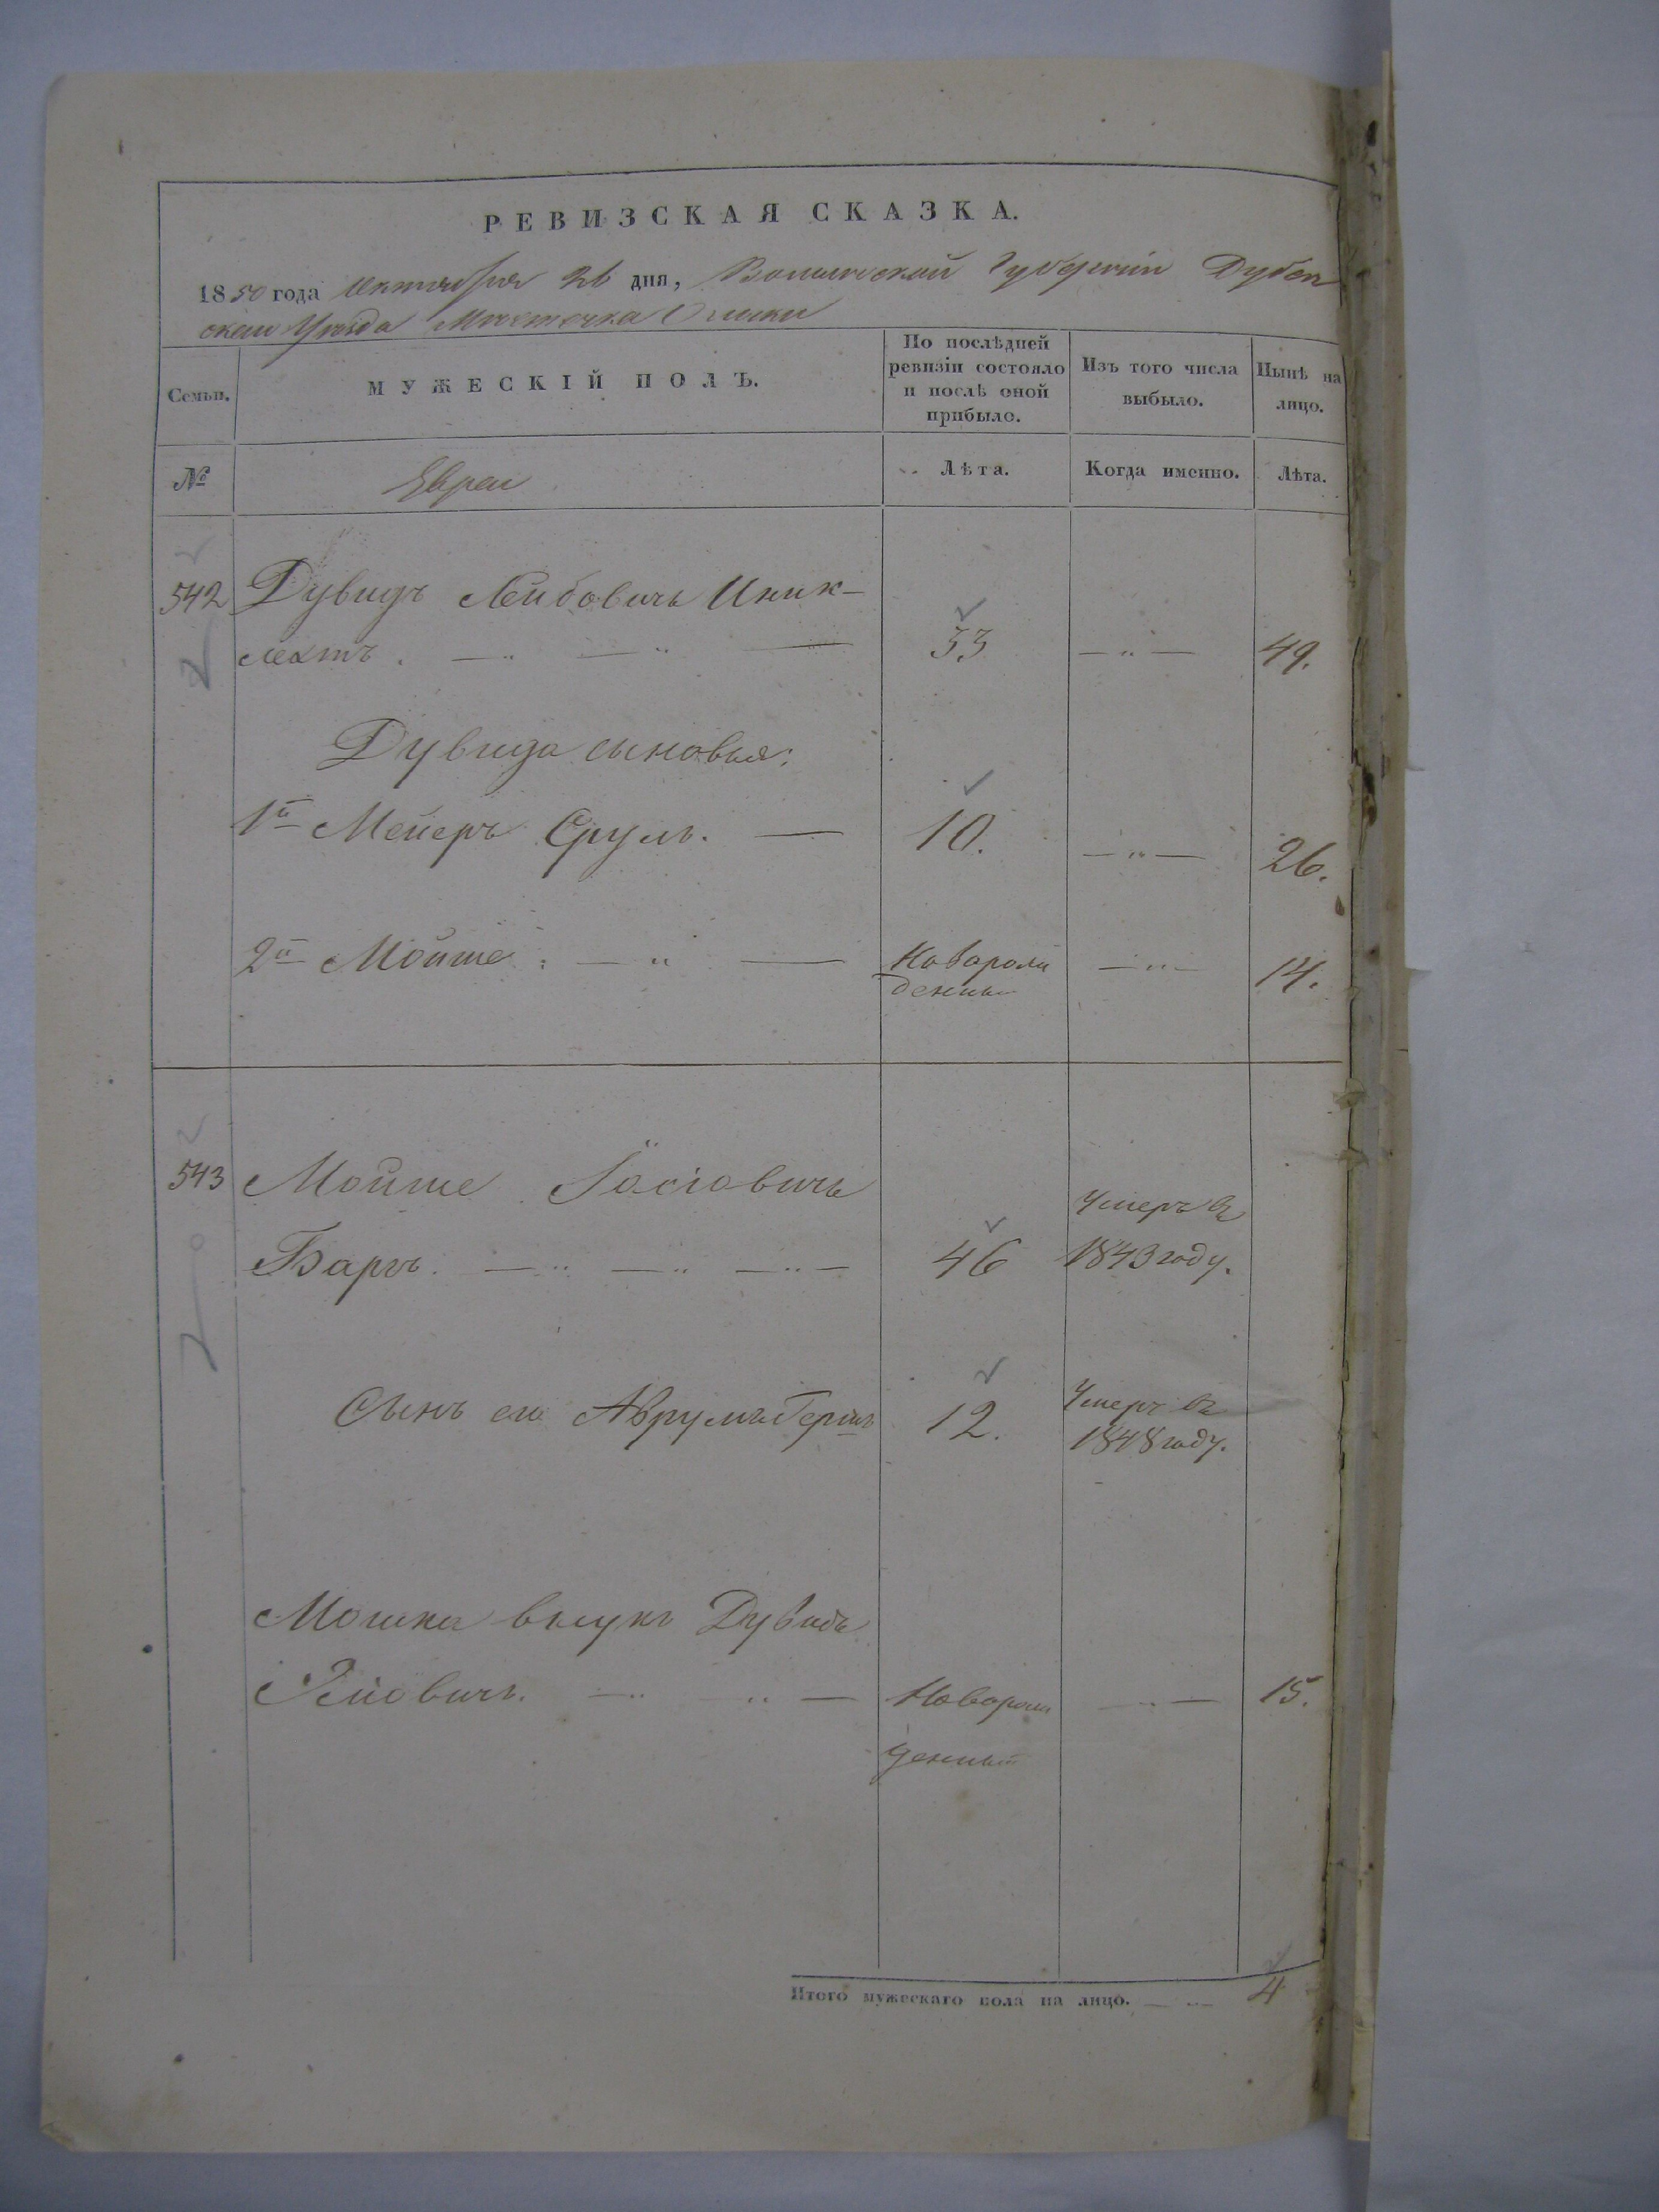 РЕВИЗСКАЯ СКАЗКА.
1850 года Октября 26 дня, Волынской Губерніи Дубен
скаго Уѣзда Мѣстечка Олыки
Семьи.
МУЖЕСКІЙ ПОЛЪ.
По послѣдней
ревизіи состояло
и послѣ оной
прибыло.
Изъ того числа
выбыло.
Нынѣ на
лицо.
№
Евреи
Лѣта.
Когда именно.
Лѣта.
542 Дувидъ Лейбовичъ
33 49.
Дувида сыновья:
1й Мейеръ Сруль. 10. 26.
2й Мойше Новорож 14.
денный
543 Мойше Іосіовичъ
Умеръ въ
Баръ. 46 1843 году.
Сынъ его Аврумъ Берко 12. Умеръ въ
1848 году.
Мошка внукъ Дувидъ
Новорож 15.
денный
Итого мужескаго пола на лицо. 4